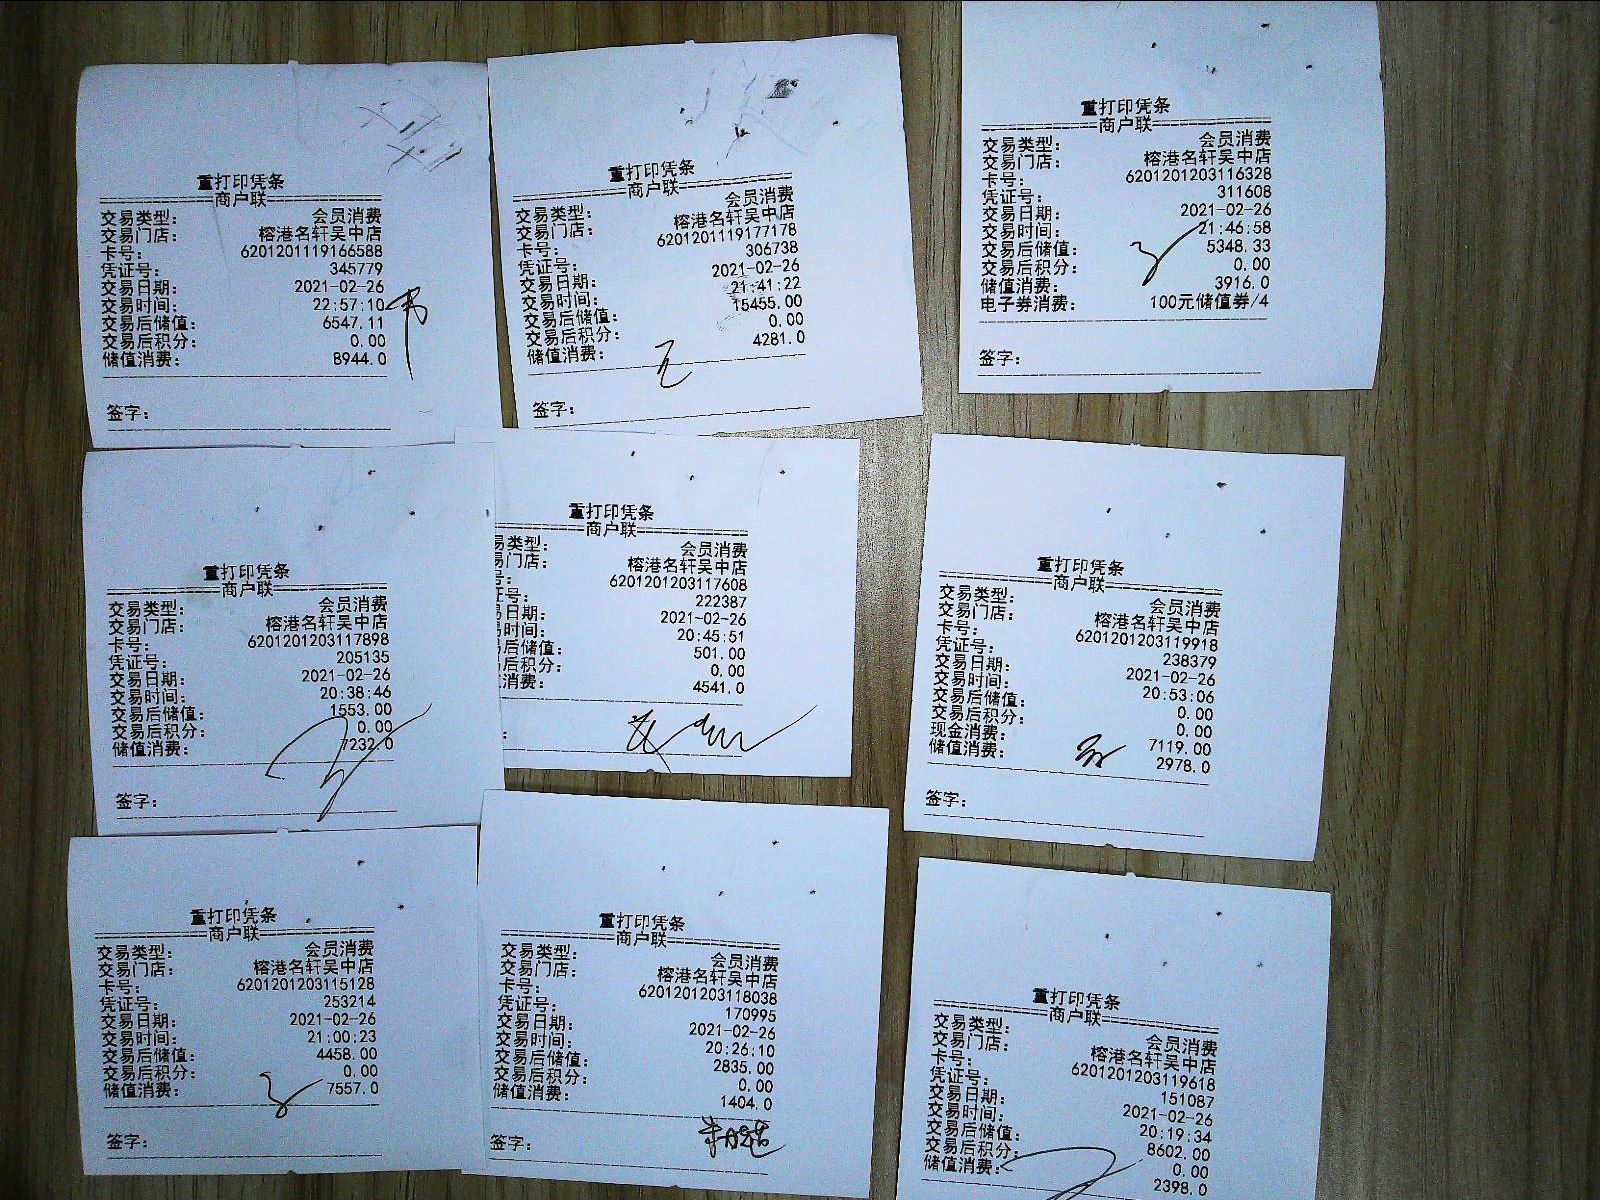 重打印凭条
商户联
交易类型： 会员消费
交易门店： 榕港名轩吴中店
卡号： 6201201119166588
凭证号： 345779
交易日期： 2021-02-26
交易时间： 22:57:10
交易后储值： 6547.11
交易后积分： 0.00
储值消费： 8944.0
签字：
重打印凭条
商户联
交易类型： 会员消费
交易门店： 榕港名轩吴中店
卡号： 6201201119177178
凭证号： 306738
交易日期： 2021-02-26
交易时间： 21:41:22
交易后储值： 15455.00
交易后积分： 0.00
储值消费： 4281.0
签字：
重打印凭条
商户联
交易类型： 会员消费
交易门店： 榕港名轩吴中店
卡号： 6201201203116328
凭证号： 311608
交易日期： 2021-02-26
交易时间： 21:46:58
交易后储值： 5348.33
交易后积分： 0.00
储值消费： 3916.0
电子券消费： 100元储值券/4
签字：
重打印凭条
商户联
交易类型： 会员消费
交易门店： 榕港名轩吴中店
卡号： 6201201203117898
凭证号： 205135
交易日期： 2021-02-26
交易时间： 20:38:46
交易后储值： 1553.00
交易后积分： 0.00
储值消费： 7232.0
签字：
重打印凭条
商户联
易类型： 会员消费
易门店： 榕港名轩吴中店
号： 6201201203117608
证号： 222387
易日期： 2021-02-26
易时间： 20:45:51
易后储值： 501.00
易后积分： 0.00
值消费： 4541.0
重打印凭条
商户联
交易类型： 会员消费
交易门店： 榕港名轩吴中店
卡号： 6201201203119918
凭证号： 238379
交易日期： 2021-02-26
交易时间： 20:53:06
交易后储值： 0.00
交易后积分： 0.00
现金消费： 7119.00
储值消费： 2978.0
签字：
重打印凭条
商户联
交易类型： 会员消费
交易门店： 榕港名轩吴中店
卡号： 6201201203115128
凭证号： 253214
交易日期： 2021-02-26
交易时间： 21:00:23
交易后储值： 4458.00
交易后积分： 0.00
储值消费： 7557.0
签字：
重打印凭条
商户联
交易类型： 会员消费
交易门店： 榕港名轩吴中店
卡号： 6201201203118038
凭证号： 170995
交易日期： 2021-02-26
交易时间： 20:26:10
交易后储值： 2835.00
交易后积分： 0.00
储值消费： 1404.0
签字：
重打印凭条
商户联
交易类型： 会员消费
交易门店： 榕港名轩吴中店
卡号： 6201201203119618
凭证号： 151087
交易日期： 2021-02-26
交易时间： 20:19:34
交易后储值： 8602.00
交易后积分： 0.00
储值消费： 2398.0